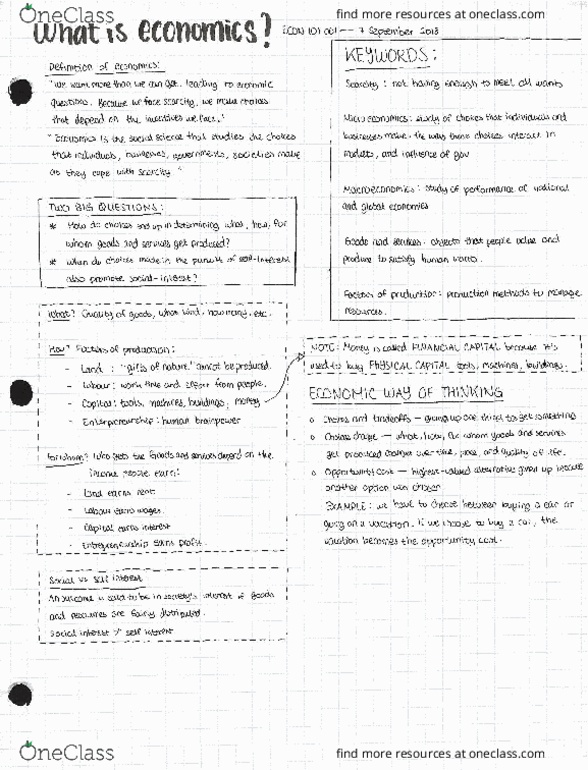 OneClass
find more resources at oneclass.com
What is economics?
ECON 101 001 — 7 September 2018
Definition of economics:
"We want more than we can get, leading to economic
questions. Because we face scarcity, we make choices
that depend on the incentives we face."
"Economics is the social science that studies the choices
that individuals, businesses, governments, societies make
as they cope with scarcity"
TWO BIG QUESTIONS:
* How do choices end up in determining what, how, for
whom goods and services get produced?
* When do choices made in the pursuit of self-interest
also promote social-interest?
What? Quality of goods, what kind, how many, etc.
How? Factors of production:
- Land : "gifts of nature" cannot be produced.
- Labour: work time and effort from people.
- Capital: tools, machines, buildings, money
- Entrepreneurship: human brainpower
For whom? Who gets the goods and services depend on the
income people earn:
- Land earns rent
- Labour earns wages
- Capital earns interest
- Entrepreneurship earns profit.
Social vs self interest
An outcome is said to be in society's interest if goods
and resources are fairly distributed.
Social interest > self interest
KEYWORDS:
Scarcity : not having enough to meet all wants
Micro economics: study of choices that individuals and
businesses make, the ways these choices interact in
markets, and influence of gov
Macroeconomics: study of performance of national
and global economies
Goods and services: objects that people value and
produce to satisfy human wants.
Factors of production: production methods to manage
resources.
NOTE: Money is called FINANCIAL CAPITAL because it's
used to buy PHYSICAL CAPITAL tools, machines, buildings.
ECONOMIC WAY OF THINKING
o Choices and tradeoffs — giving up one thing to get something
o Choices change — what, how, for whom goods and services
get produced changes over time, place, and quality of life.
o Opportunity cost — highest-valued alternative given up because
another option was chosen
EXAMPLE: we have to choose between buying a car or
going on a vacation. If we choose to buy a car, the
vacation becomes the opportunity cost.
OneClass
find more resources at oneclass.com